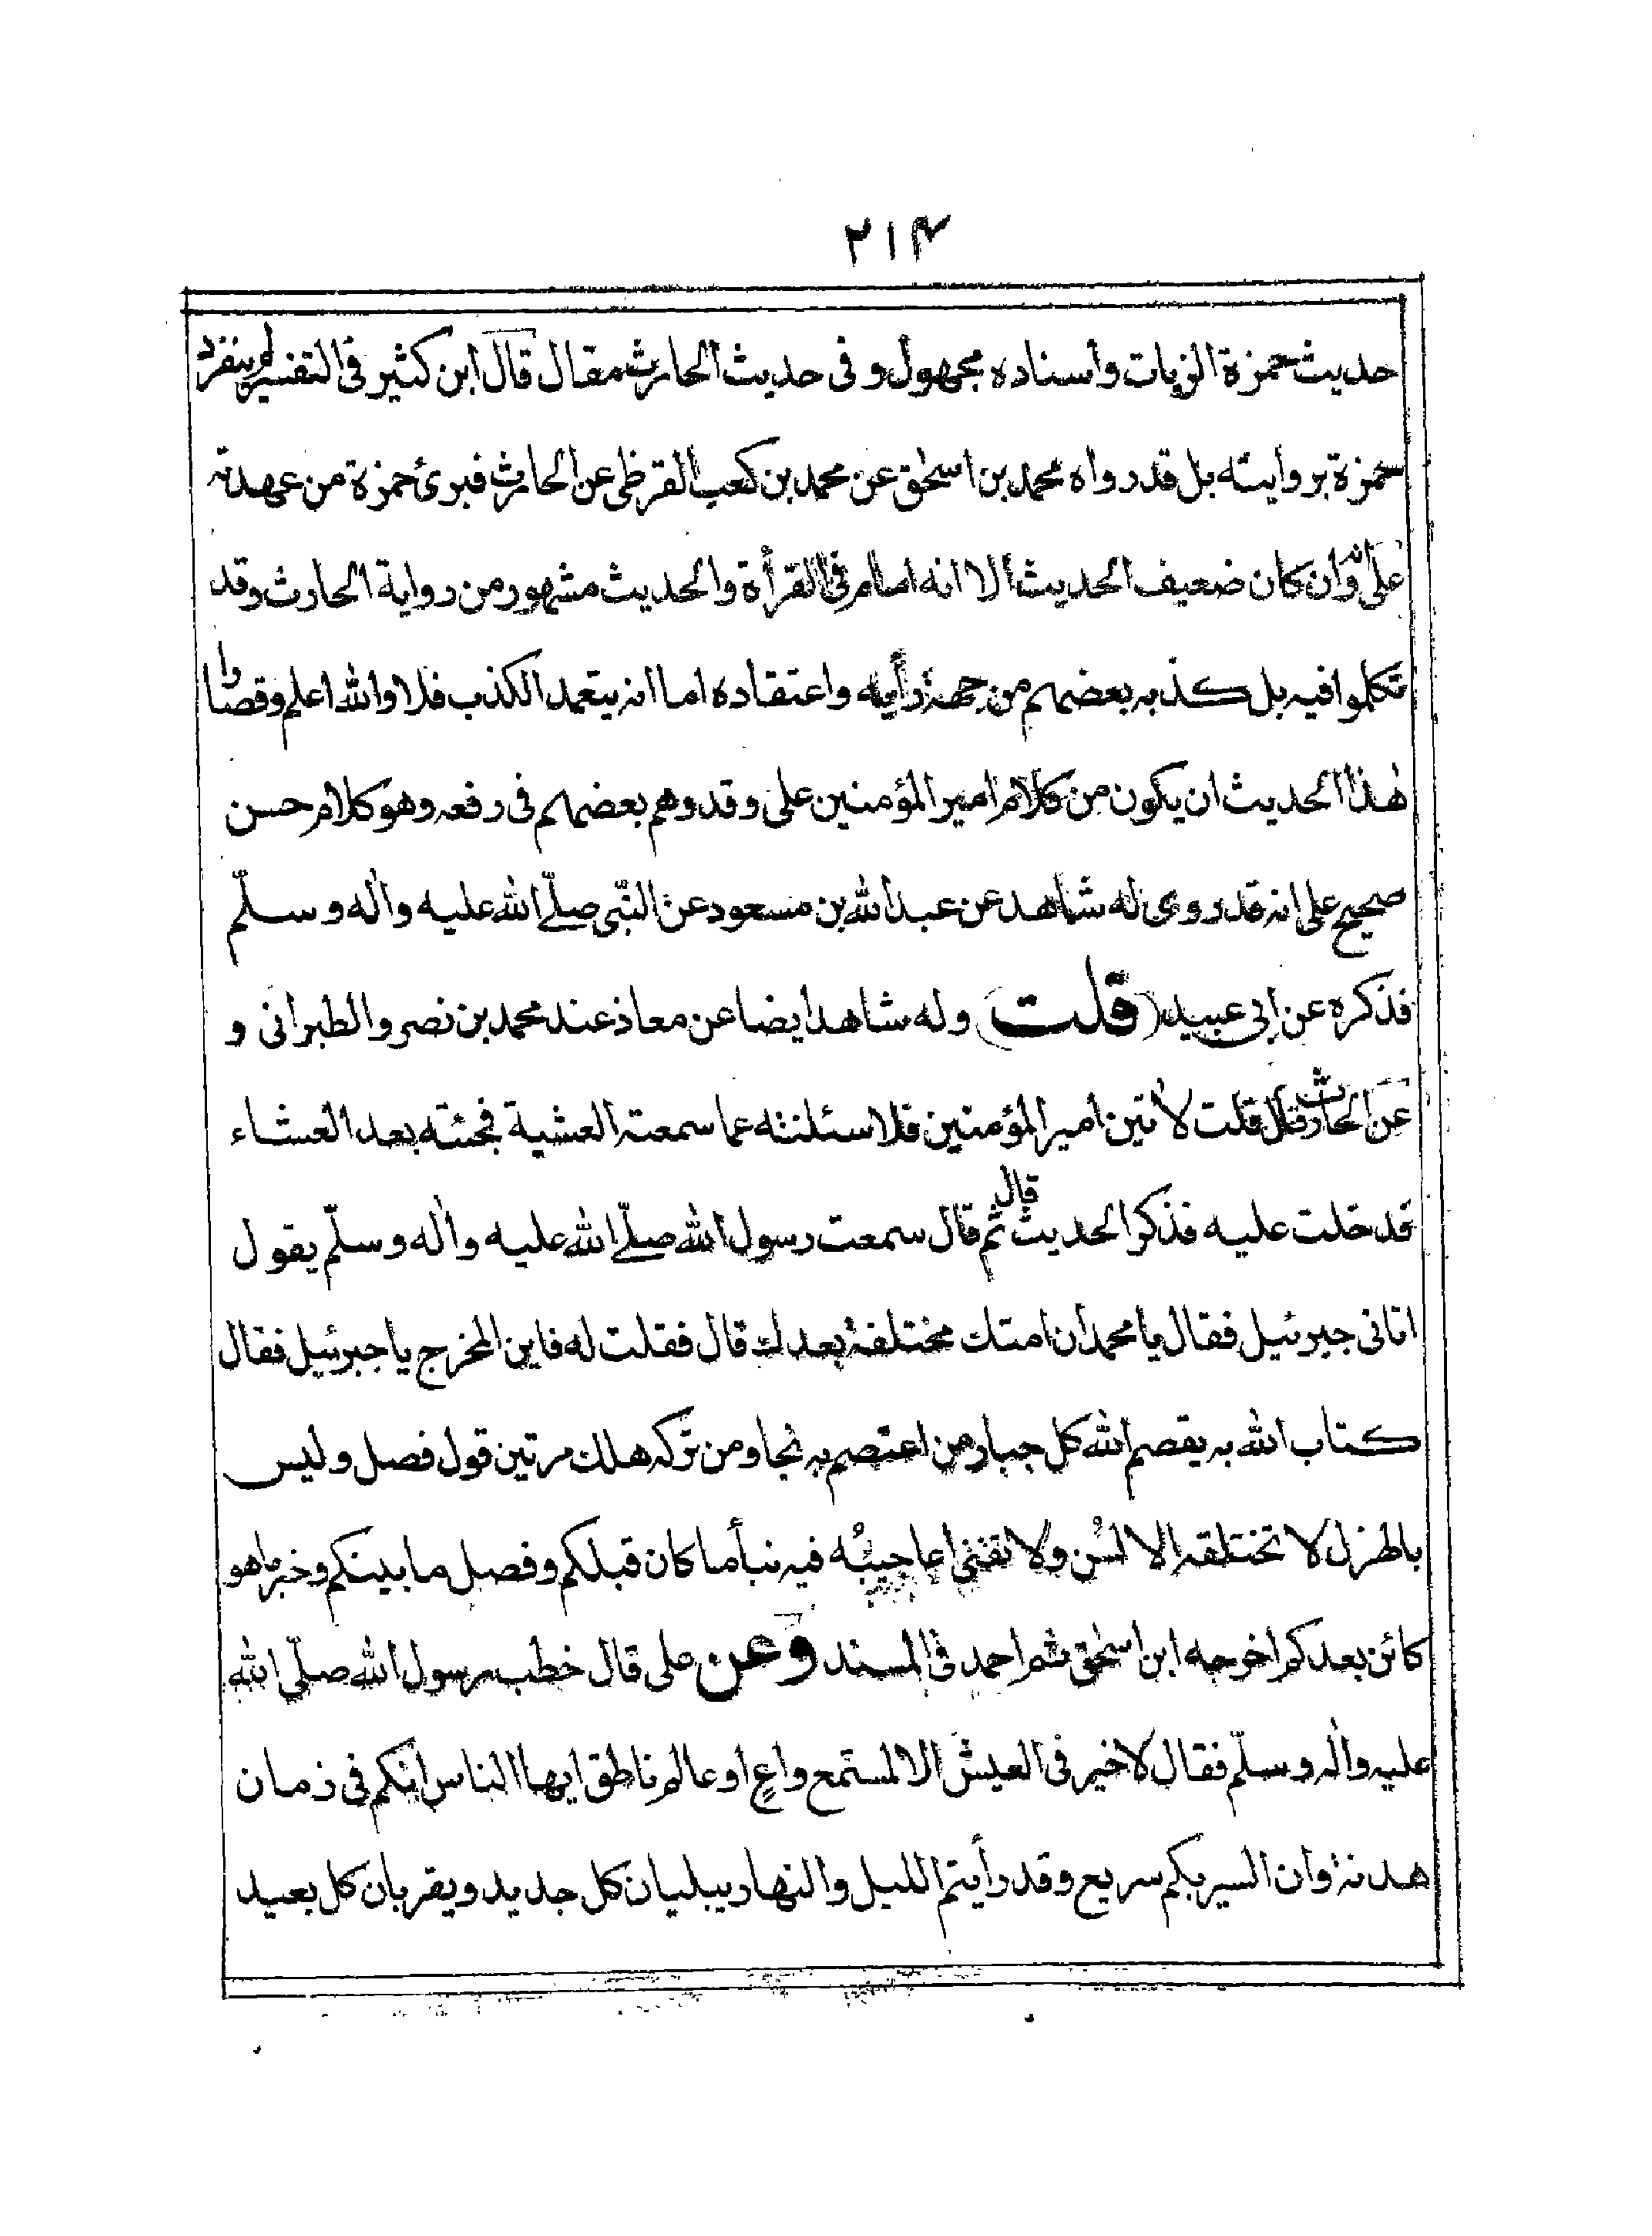 ٢١٤
حديث حمزة الزيات وأسناده مجهول و فى حديث الحارث مقال قال ابن كثير فى التفسير لم ينفرد
حمزة بروايته بل قد رواه محمد بن اسحٰق عن محمد بن كعب القرظى عن الحارث فبرئ حمزة من عهدته
على انه وان كان ضعيف الحديث الا انه امام فى القرأة والحديث مشهور من رواية الحارث وقد
تكلموا فيه بل كذبه بعضهم من جهة رأيه واعتقاده اما انه يتعمد الكذب فلا والله اعلم وقصارا
هٰذا الحديث ان يكون من كلام امير المؤمنين على وقد وهم بعضهم فى رفعه وهو كلام حسن
صحيح على انه قد روى له شاهد عن عبد الله بن مسعود عن النّبى صلّے الله عليه واٰله وسلّم
فذكره عن ابى عبيد (قلت) وله شاهد ايضا عن معاذ عند محمد بن نصر والطبرانى و
عن الحارث قال قلت لاٰتين امير المؤمنين فلاسئلنه عما سمعت العشية فجئته بعد العشاء
فدخلت عليه فذكر الحديث قال ثم قال سمعت رسول الله صلّے الله عليه واٰله وسلّم يقول
اتانى جبرئيل فقال يا محمد ان امتك مختلفة بعدك قال فقلت له فاين المخرج يا جبرئيل فقال
كتاب الله به يقصم الله كل جبار من اعتصم به نجا ومن تركه هلك مرتين قول فصل وليس
بالهزل لا تختلقه الالسُن ولا تفنى اعاجيبُه فيه نبأ ما كان قبلكم وفصل ما بينكم وخبر ما هو
كائن بعدكم اخرجه ابن اسحٰق ثم احمد فى المسند وعن على قال خطب رسول الله صلّى الله
عليه واٰله وسلّم فقال لا خير فى العيش الا لمستمع واعٍ او عالم ناطق ايها الناس انكم فى زمان
هدنة وان السير بكم سريع وقد رأيتم الليل والنهار يبليان كل جديد ويقربان كل بعيد